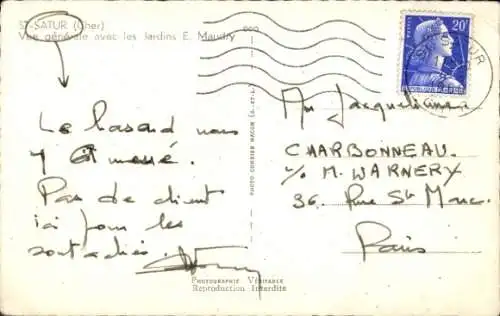 ST-SATUR (Cher)
Vue générale avec les Jardins E. Maudry
Le hasard nous
y a mené.
Pas de client
ici pour les
PHOTO COMBIER MACON (S.-ET-L.)
PHOTOGRAPHIE VÉRITABLE
Reproduction Interdite
20F
CHARBONNEAU.
c/o M. WARNERY
36. Rue St Marc.
Paris